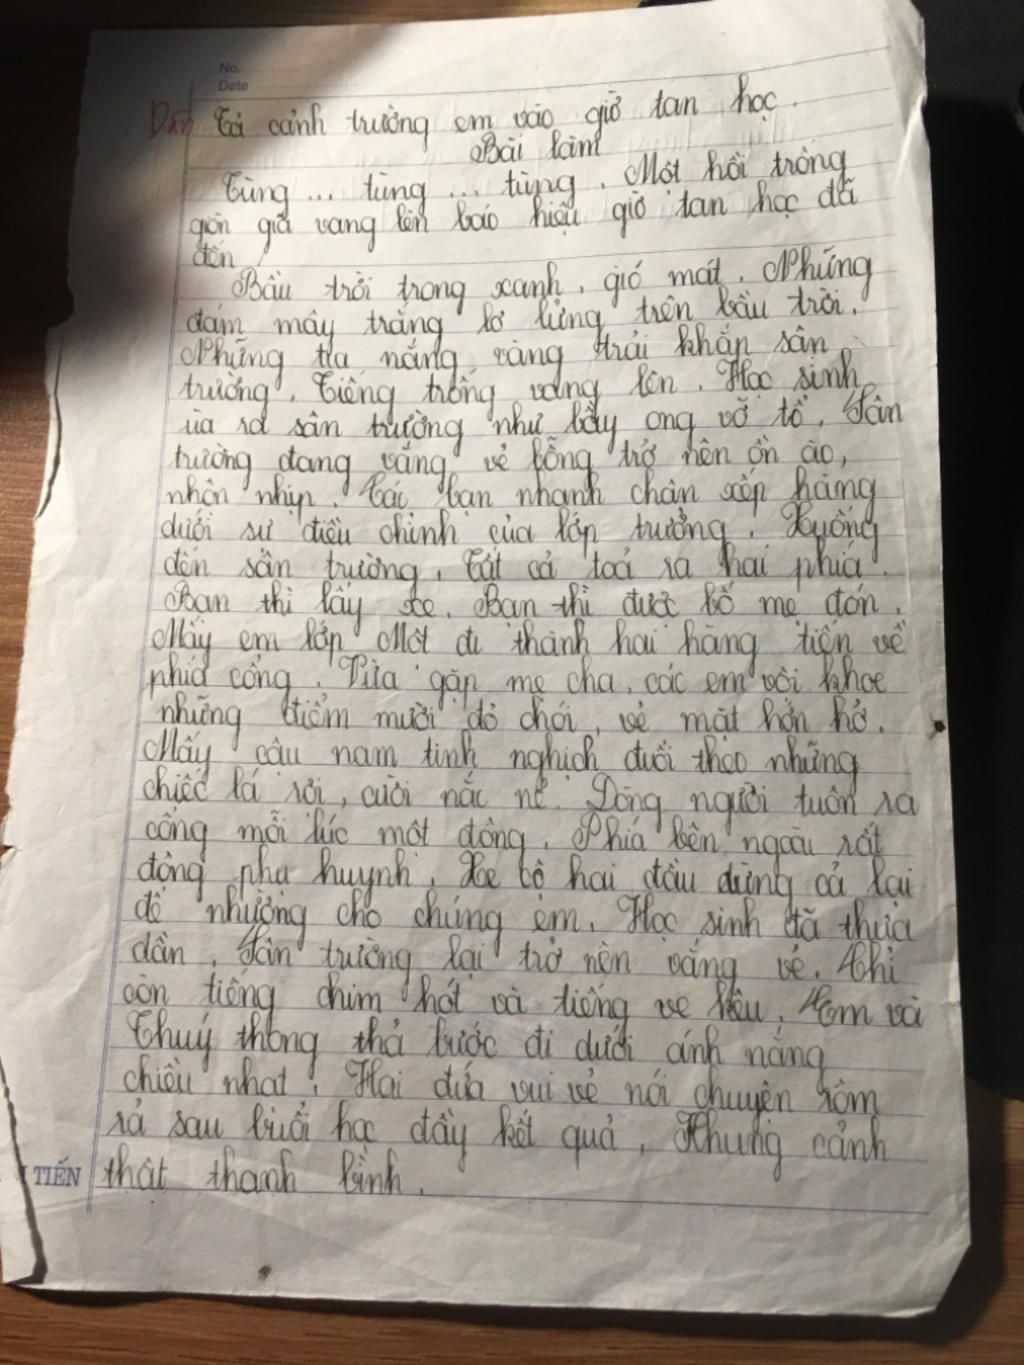 No. ............
Date ..................
Dàn Tả cảnh trường em vào giờ tan học.
Bài làm
Tùng ... tùng ... tùng. Một hồi trống
giòn giã vang lên báo hiệu giờ tan học đã
đến.
Bầu trời trong xanh, gió mát. Những
đám mây trắng lơ lửng trên bầu trời.
Những tia nắng vàng trải khắp sân
trường. Tiếng trống vang lên. Học sinh
ùa ra sân trường như bầy ong vỡ tổ. Sân
trường đang vắng vẻ bỗng trở nên ồn ào,
nhộn nhịp. Các bạn nhanh chân xếp hàng
dưới sự điều chỉnh của lớp trưởng. Xuống
đến sân trường, tất cả toả ra hai phía.
Bạn thì lấy xe. Bạn thì được bố mẹ đón.
Mấy em lớp Một đi thành hai hàng tiến về
phía cổng. Vừa gặp mẹ cha, các em vội khoe
những điểm mười đỏ chói, vẻ mặt hớn hở.
Mấy cậu nam tinh nghịch đuổi theo những
chiếc lá rơi, cười nắc nẻ. Dòng người tuôn ra
cổng mỗi lúc một đông. Phía bên ngoài rất
đông phụ huynh. Xe cộ hai đầu dừng cả lại
để nhường cho chúng em. Học sinh đã thưa
dần. Sân trường lại trở nên vắng vẻ. Chỉ
còn tiếng chim hót và tiếng ve kêu. Em và
Thuý thong thả bước đi dưới ánh nắng
chiều nhạt. Hai đứa vui vẻ nói chuyện rôm
rả sau buổi học đầy kết quả. Khung cảnh
TIẾN thật thanh bình.